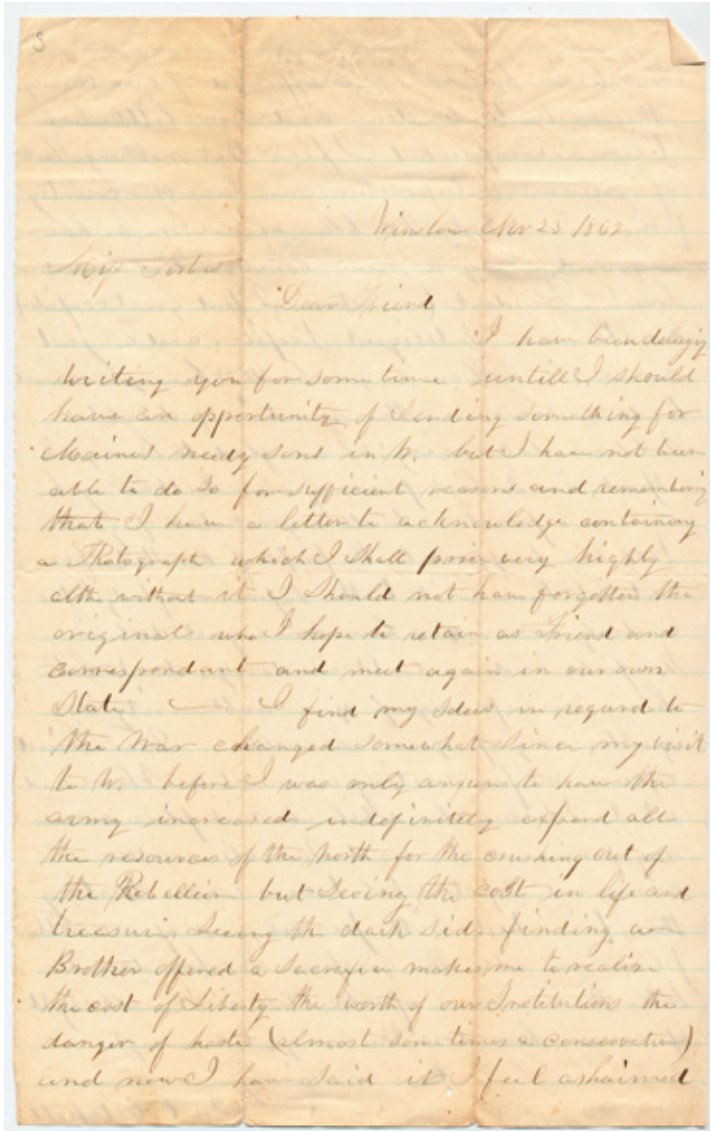 3
Winslow Nov 23 1862
Miss
Dear Friend
I have been delaying
writing you for some time untill I should
have an opportunity of sending something for
Maines needy sons in W. but I have not been
able to do so for sufficient reasons and remembering
that I have a letter to acknowledge containing
a Photograph which I shall prize very highly
altho without it I should not have forgotten the
original who I hope to retain as Friend and
correspondant and meet again in our own
State — I find my ideas in regard to
the War changed somewhat since my visit
to W. before I was only anxious to have the
army increased indefinitely expend all
the resources of the North for the crushing out of
the Rebellion but seeing the cost in life and
treasure seeing the dark side finding a
Brother offered a sacrafice makes me to realise
the cost of Liberty the worth of our Institutions the
danger of haste (almost some times a conservative)
and now I have said it I feel ashaimed